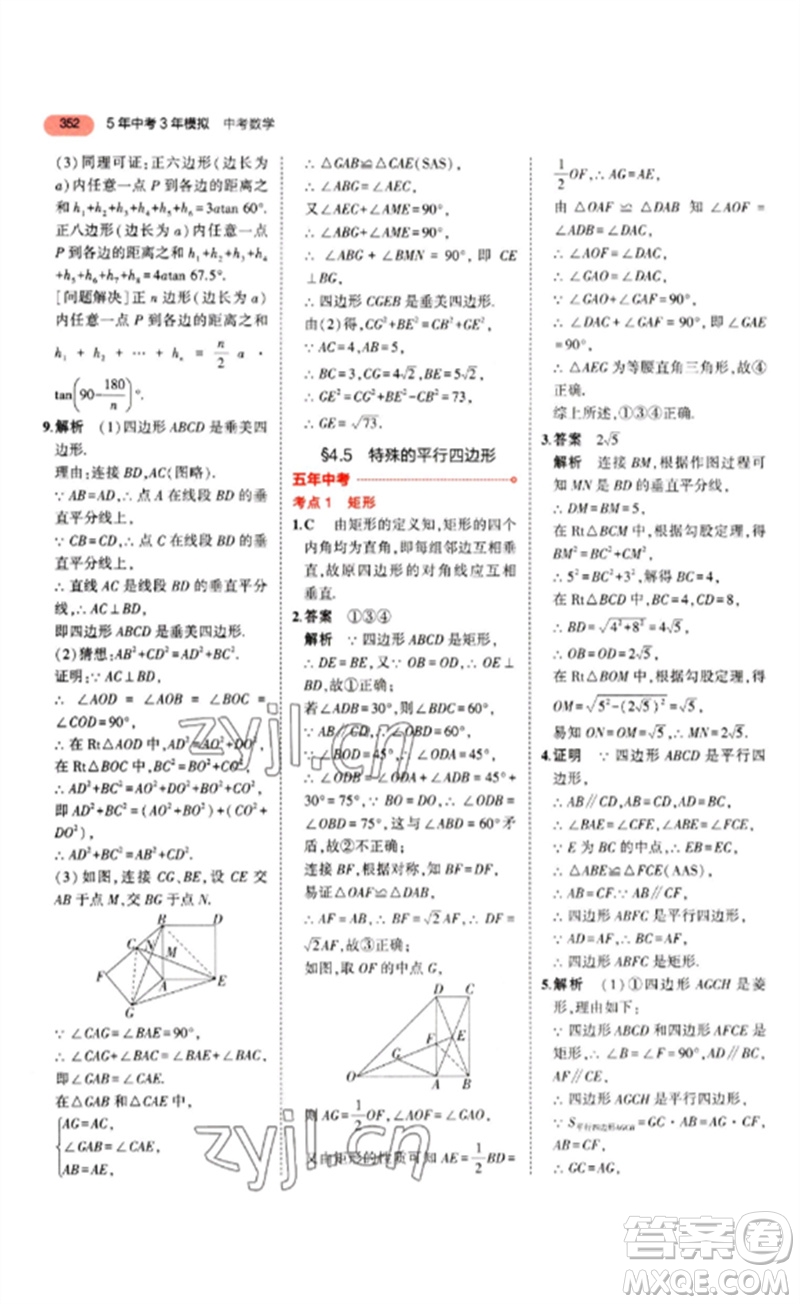 352 5年中考3年模拟 中考数学
(3)同理可证:正六边形(边长为
a)内任意一点 P 到各边的距离之
和 h₁+h₂+h₃+h₄+h₅+h₆=3atan 60°.
正八边形(边长为 a)内任意一点
P 到各边的距离之和 h₁+h₂+h₃+h₄
+h₅+h₆+h₇+h₈=4atan 67.5°.
[问题解决]正 n 边形(边长为 a)
内任意一点 P 到各边的距离之和
h₁ + h₂ + … + hₙ = n/2 a ·
tan(90-180/n)°.
9.解析 (1)四边形 ABCD 是垂美四
边形.
理由:连接 BD,AC(图略).
∵ AB=AD,∴ 点 A 在线段 BD 的垂
直平分线上,
∵ CB=CD,∴ 点 C 在线段 BD 的垂
直平分线上,
∴ 直线 AC 是线段 BD 的垂直平分
线,∴ AC⊥BD,
即四边形 ABCD 是垂美四边形.
(2)猜想:AB²+CD²=AD²+BC².
证明:∵ AC⊥BD,
∴ ∠AOD = ∠AOB = ∠BOC =
∠COD=90°,
∴ 在 Rt△AOD 中,AD²=AO²+DO²,
在 Rt△BOC 中,BC²=BO²+CO²,
∴ AD²+BC²=(AO²+BO²)+(CO²+
DO²),
∴ AD²+BC²=AB²+CD².
(3)如图,连接 CG、BE,设 CE 交
AB 于点 M,交 BG 于点 N.
B D
C N
M
F A E
G
∵ ∠CAG=∠BAE=90°,
∴ ∠CAG+∠BAC=∠BAE+∠BAC,
即 ∠GAB=∠CAE.
在△GAB 和△CAE 中,
AG=AC,
∠GAB=∠CAE,
AB=AE,
∴ △GAB≌△CAE(SAS),
∴ ∠ABG=∠AEC,
又∠AEC+∠AME=90°,
∴ ∠ABG + ∠BMN = 90°, 即 CE
⊥BG,
∴ 四边形 CGEB 是垂美四边形.
由(2)得,CG²+BE²=CB²+GE²,
∵ AC=4,AB=5,
∴ BC=3,CG=4√2,BE=5√2,
∴ GE²=CG²+BE²-CB²=73,
∴ GE=√73.
§4.5 特殊的平行四边形
五年中考
考点1 矩形
1.C 由矩形的定义知,矩形的四个
内角均为直角,即每组邻边互相垂
直,故原四边形的对角线应互相
垂直.
2.答案 ①③④
解析 ∵ 四边形 ABCD 是矩形,
∴ DE=BE,又∵ OD=OB,∴ OE⊥
BD,故①正确;
若∠ADB=30°,则∠BDC=60°,
∵ ∠BOD=45°,∴ ∠ODA=45°,
∴ ∠ODB=∠ODA+∠ADB=45°+
30°=75°,∵ BO=DO,∴ ∠ODB=
∠OBD=75°,这与∠ABD=60°矛
盾,故②不正确;
连接 BF,∵ ∠BOD=45°,
易证△OAF≌△DAB,
∴ AF = AB, ∴ BF = √2AF, ∴ DF =
√2AF,故③正确;
如图,取 OF 的中点 G,
D C
F E
G
O A B
则 AG=1/2OF,∠AOF=∠GAO,
又由矩形的性质可知 AE=1/2BD=
1/2OF,∴ AG=AE,
由 △OAF ≌ △DAB 知 ∠AOF =
∠ADB=∠DAC,
∴ ∠AOF=∠DAC,
∴ ∠GAO=∠DAC,
∵ ∠GAO+∠GAF=90°,
∴ ∠DAC + ∠GAF = ∠GAE = 90°,
∴ △AEG 为等腰直角三角形,故④
正确.
综上所述,①③④正确.
3.答案 2√5
解析 连接 BM,根据作图过程可
知 MN 是 BD 的垂直平分线,
∴ DM=BM=5,
在 Rt△BCM 中,根据勾股定理,得
BM²=BC²+MC²,
∴ 5²=BC²+3²,解得 BC=4,
在 Rt△BCD 中,BC=4,CD=8,
∴ BD=√4²+8²=4√5,
∴ OB=OD=2√5,
在 Rt△BOM 中,根据勾股定理,得
OM=√5²-(2√5)²=√5,
易知 ON=OM=√5,∴ MN=2√5.
4.证明 ∵ 四边形 ABCD 是平行四
边形,
∴ AB∥CD,AB=CD,
∴ ∠BAE=∠CFE,∠ABE=∠FCE,
∵ E 为 BC 的中点,∴ EB=EC,
∴ △ABE≌△FCE(AAS),
∴ AB=CF.∵ AB∥CF,
∴ 四边形 ABFC 是平行四边形,
∵ AD=AF,∴ BC=AF,
∴ 四边形 ABFC 是矩形.
5.解析 (1)①四边形 AGCH 是菱
形,理由如下:
∵ 四边形 ABCD 和四边形 AFCE 是
矩形,∴ ∠B=∠F=90°,AD∥BC,
AF∥CE,
∴ 四边形 AGCH 是平行四边形,
∵ S平行四边形AGCH=GC·AB=AG·CF,
AB=CF,
∴ GC=AG,
zyjl.cn
zyjl.cn
答案圈
MXQE.COM